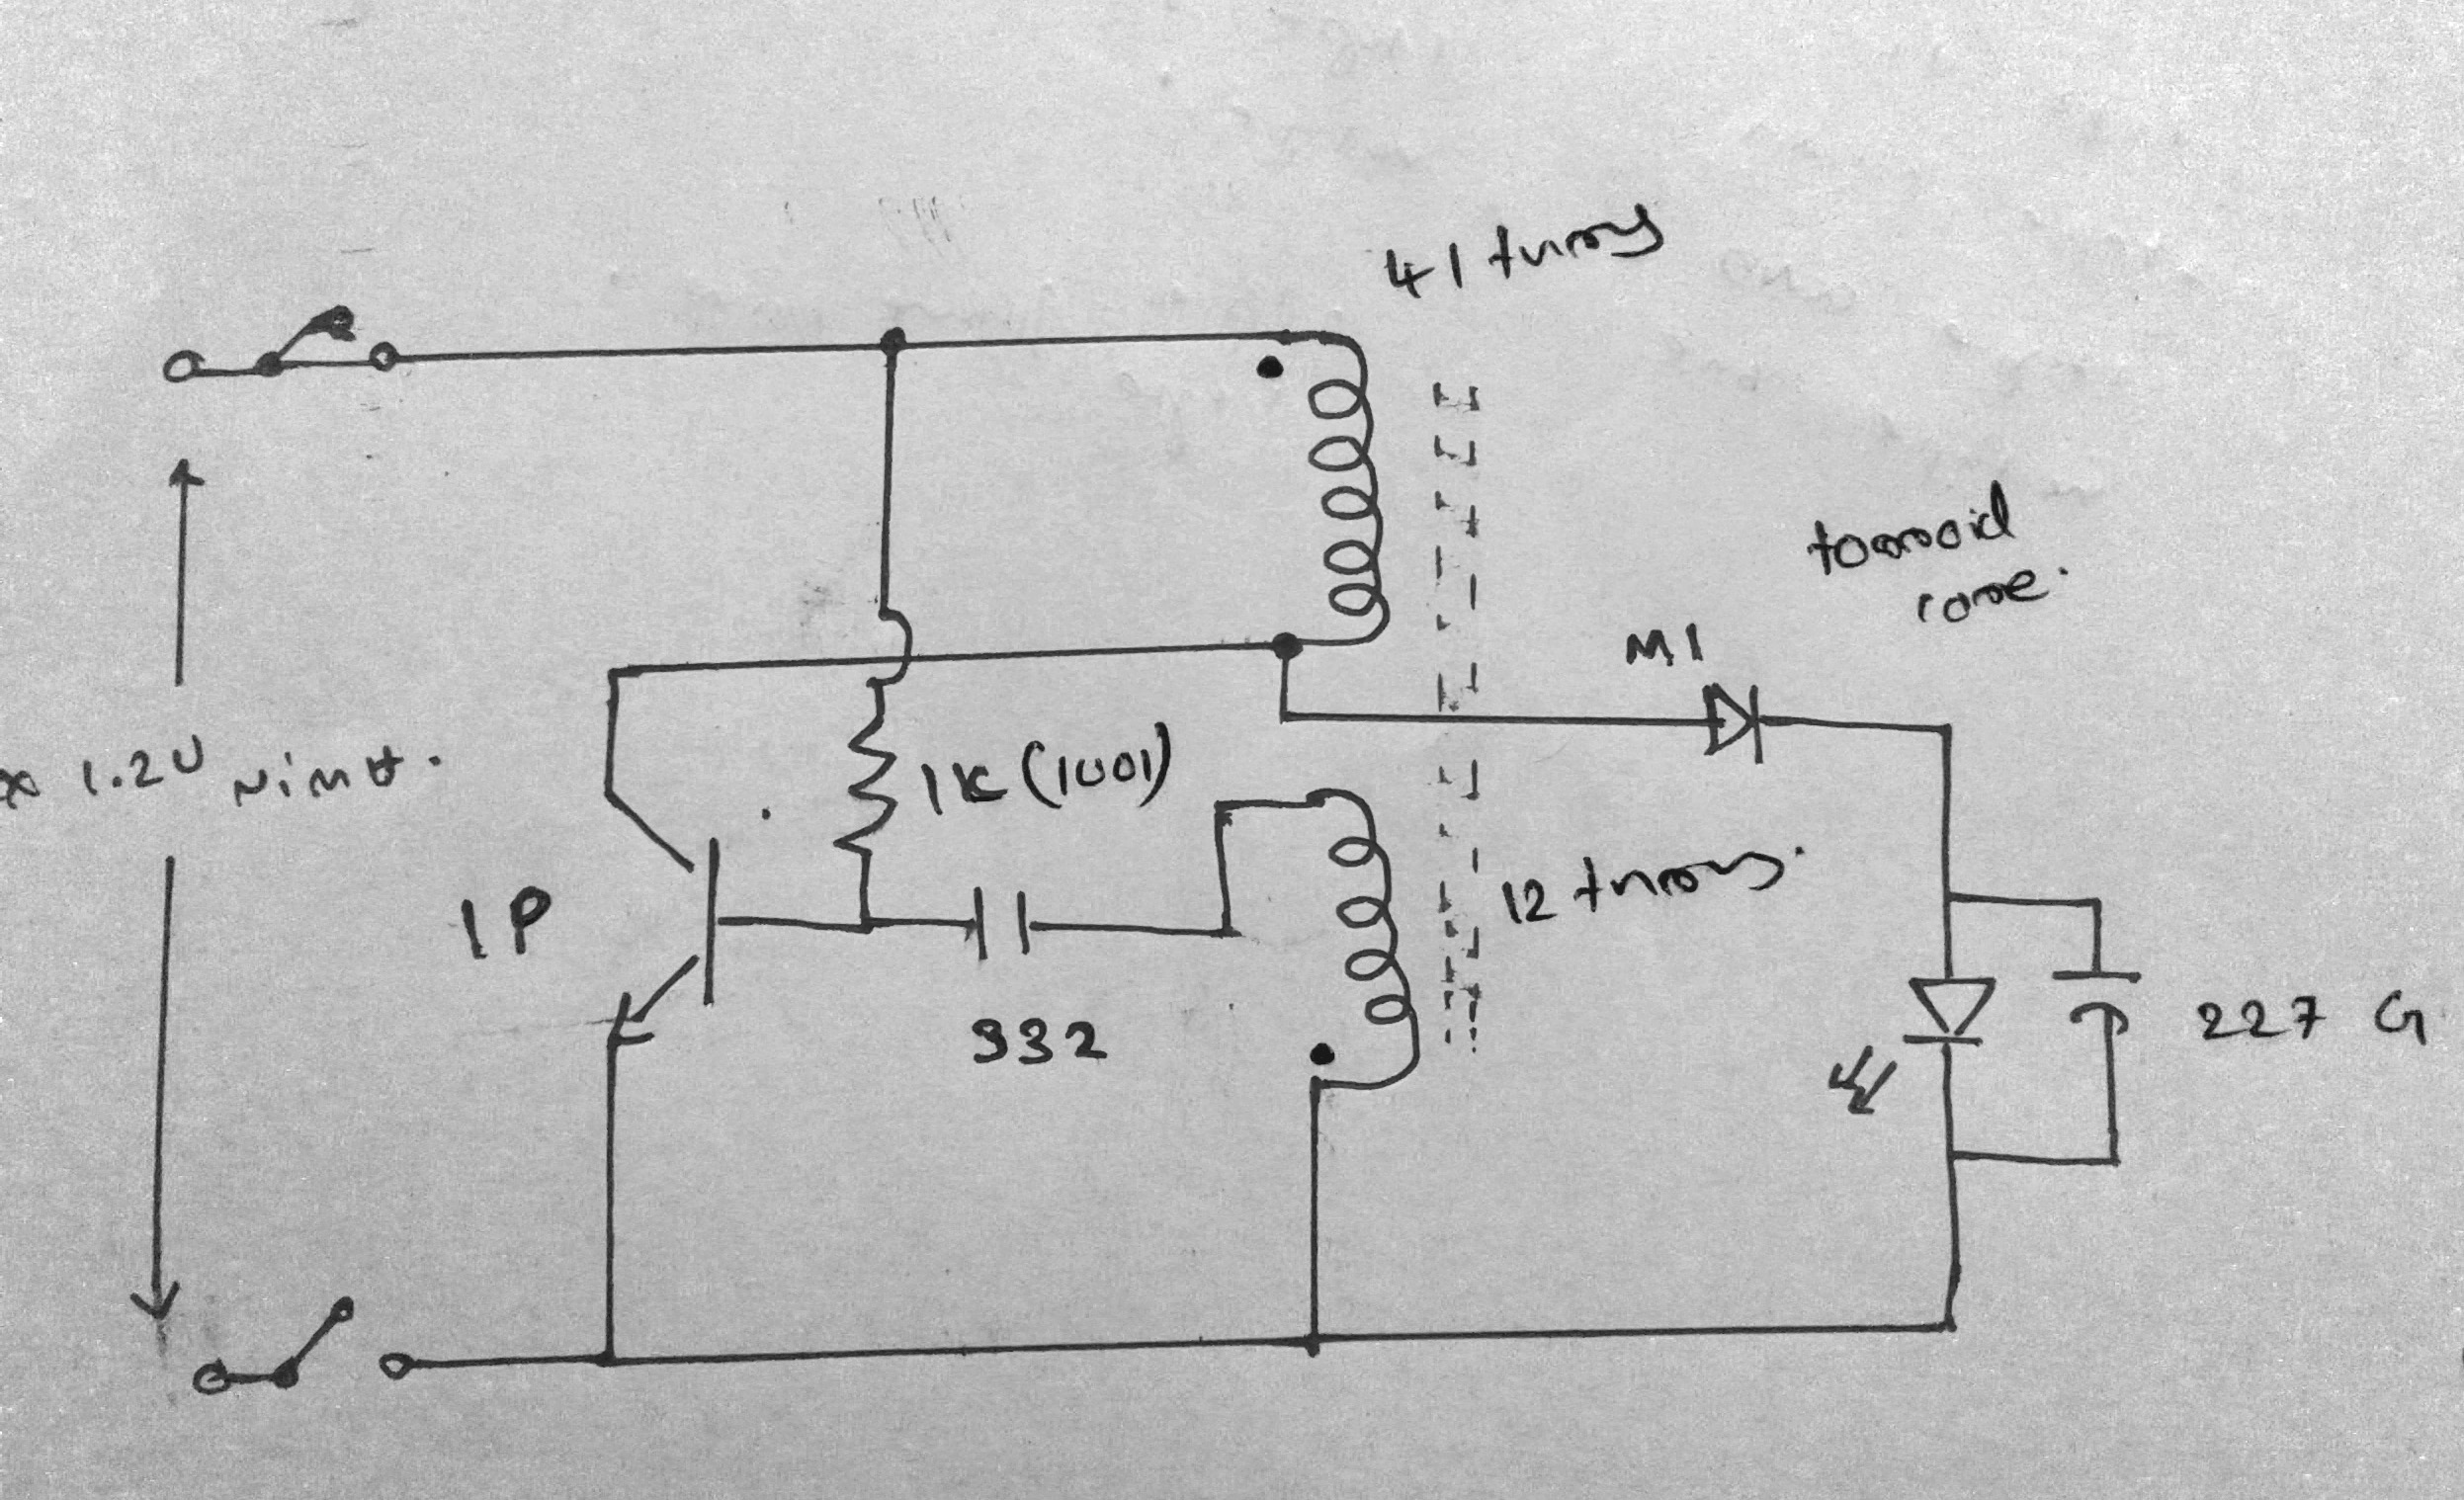 41 turns
toroid
core.
M1
x 1.2V NiMH.
1K (1001)
1P
12 turns.
332
227 G